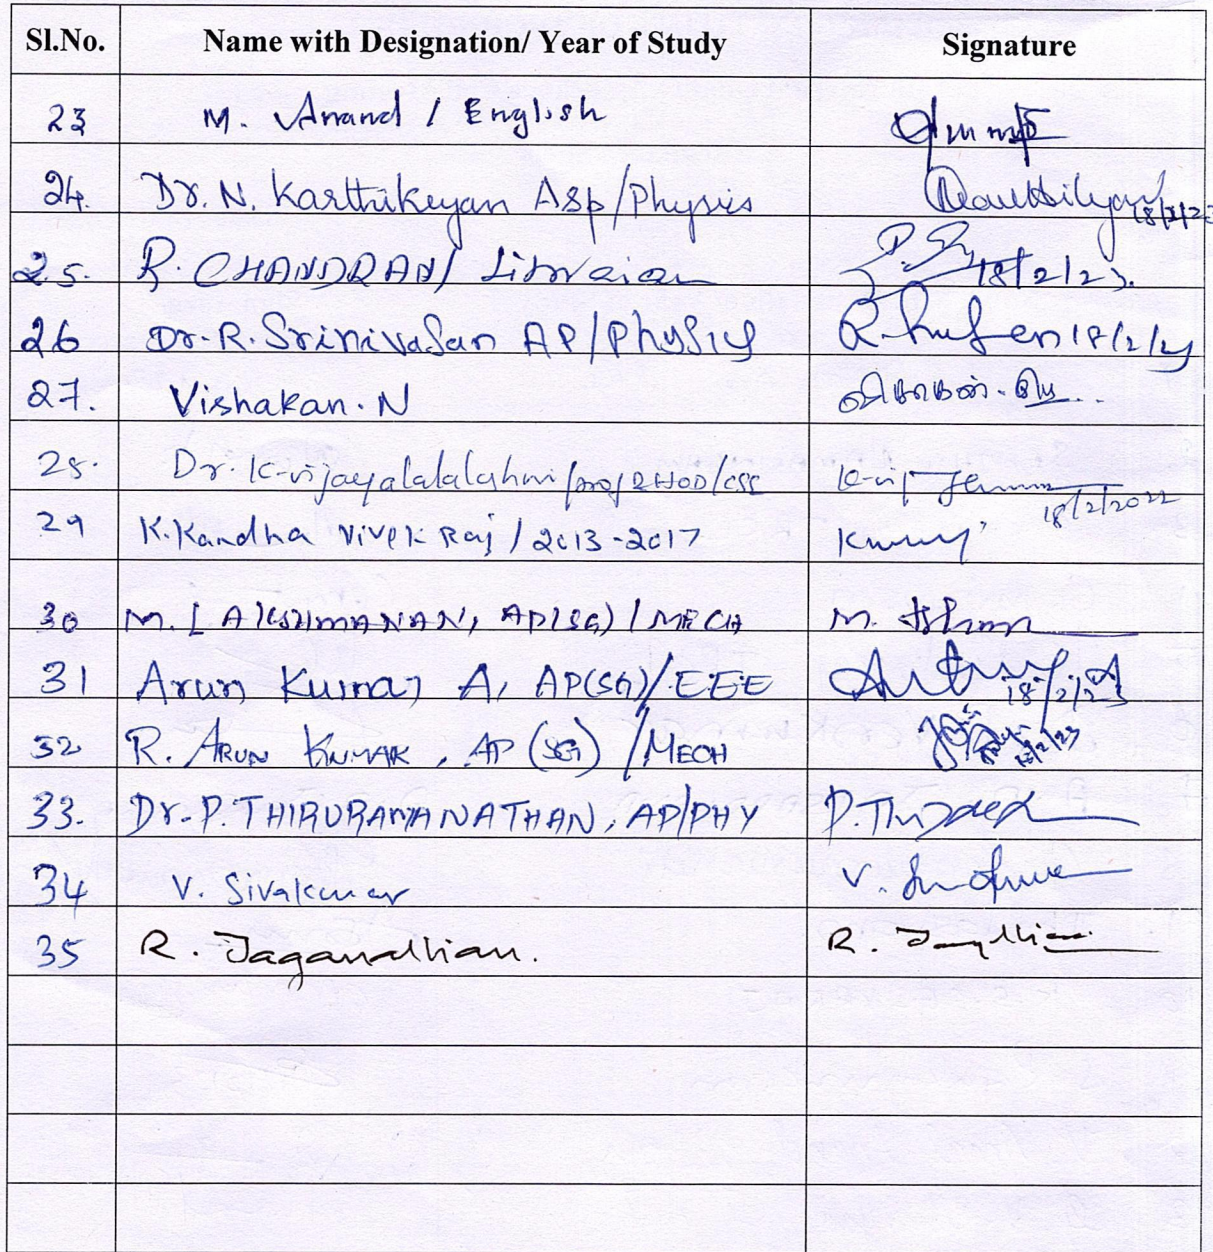 Sl.No. Name with Designation/ Year of Study Signature
23 M. Anand / English
24. Dr. N. Karthikeyan Asp/Physics 18/2/23
25. R. CHANDRAN/ Librarian 18/2/23.
26 Dr. R. Srinivasan AP/Physics 18/2/23
27. Vishakan. N விசாகன்.
28. Dr. K. vijayalalalakshmi/prof & HOD/CSE 18/2/2022
29 K. Kandha Vivek Raj / 2013-2017
30 M. LAKSHMANAN, AP(SG) / MECH M.
31 Arun Kumar A, AP(SG)/EEE 18/2/23
32 R. ARUN KUMAR, AP (SG) /MECH 18/2/23
33. Dr. P. THIRURAMANATHAN, AP/PHY
34 V. Sivakumar V.
35 R. Jagandhian. R.